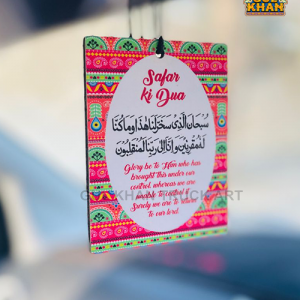 KHAN
Safar
ki Dua
سُبْحَانَ الَّذِي سَخَّرَ لَنَا هٰذَا وَمَا كُنَّا
لَهُ مُقْرِنِينَ وَإِنَّا إِلَىٰ رَبِّنَا لَمُنْقَلِبُونَ
Glory be to Him who has
brought this under our
control, whereas we are
unable to control it,
Surely we are to return
to our lord.
GULKHAN TRUCK ART